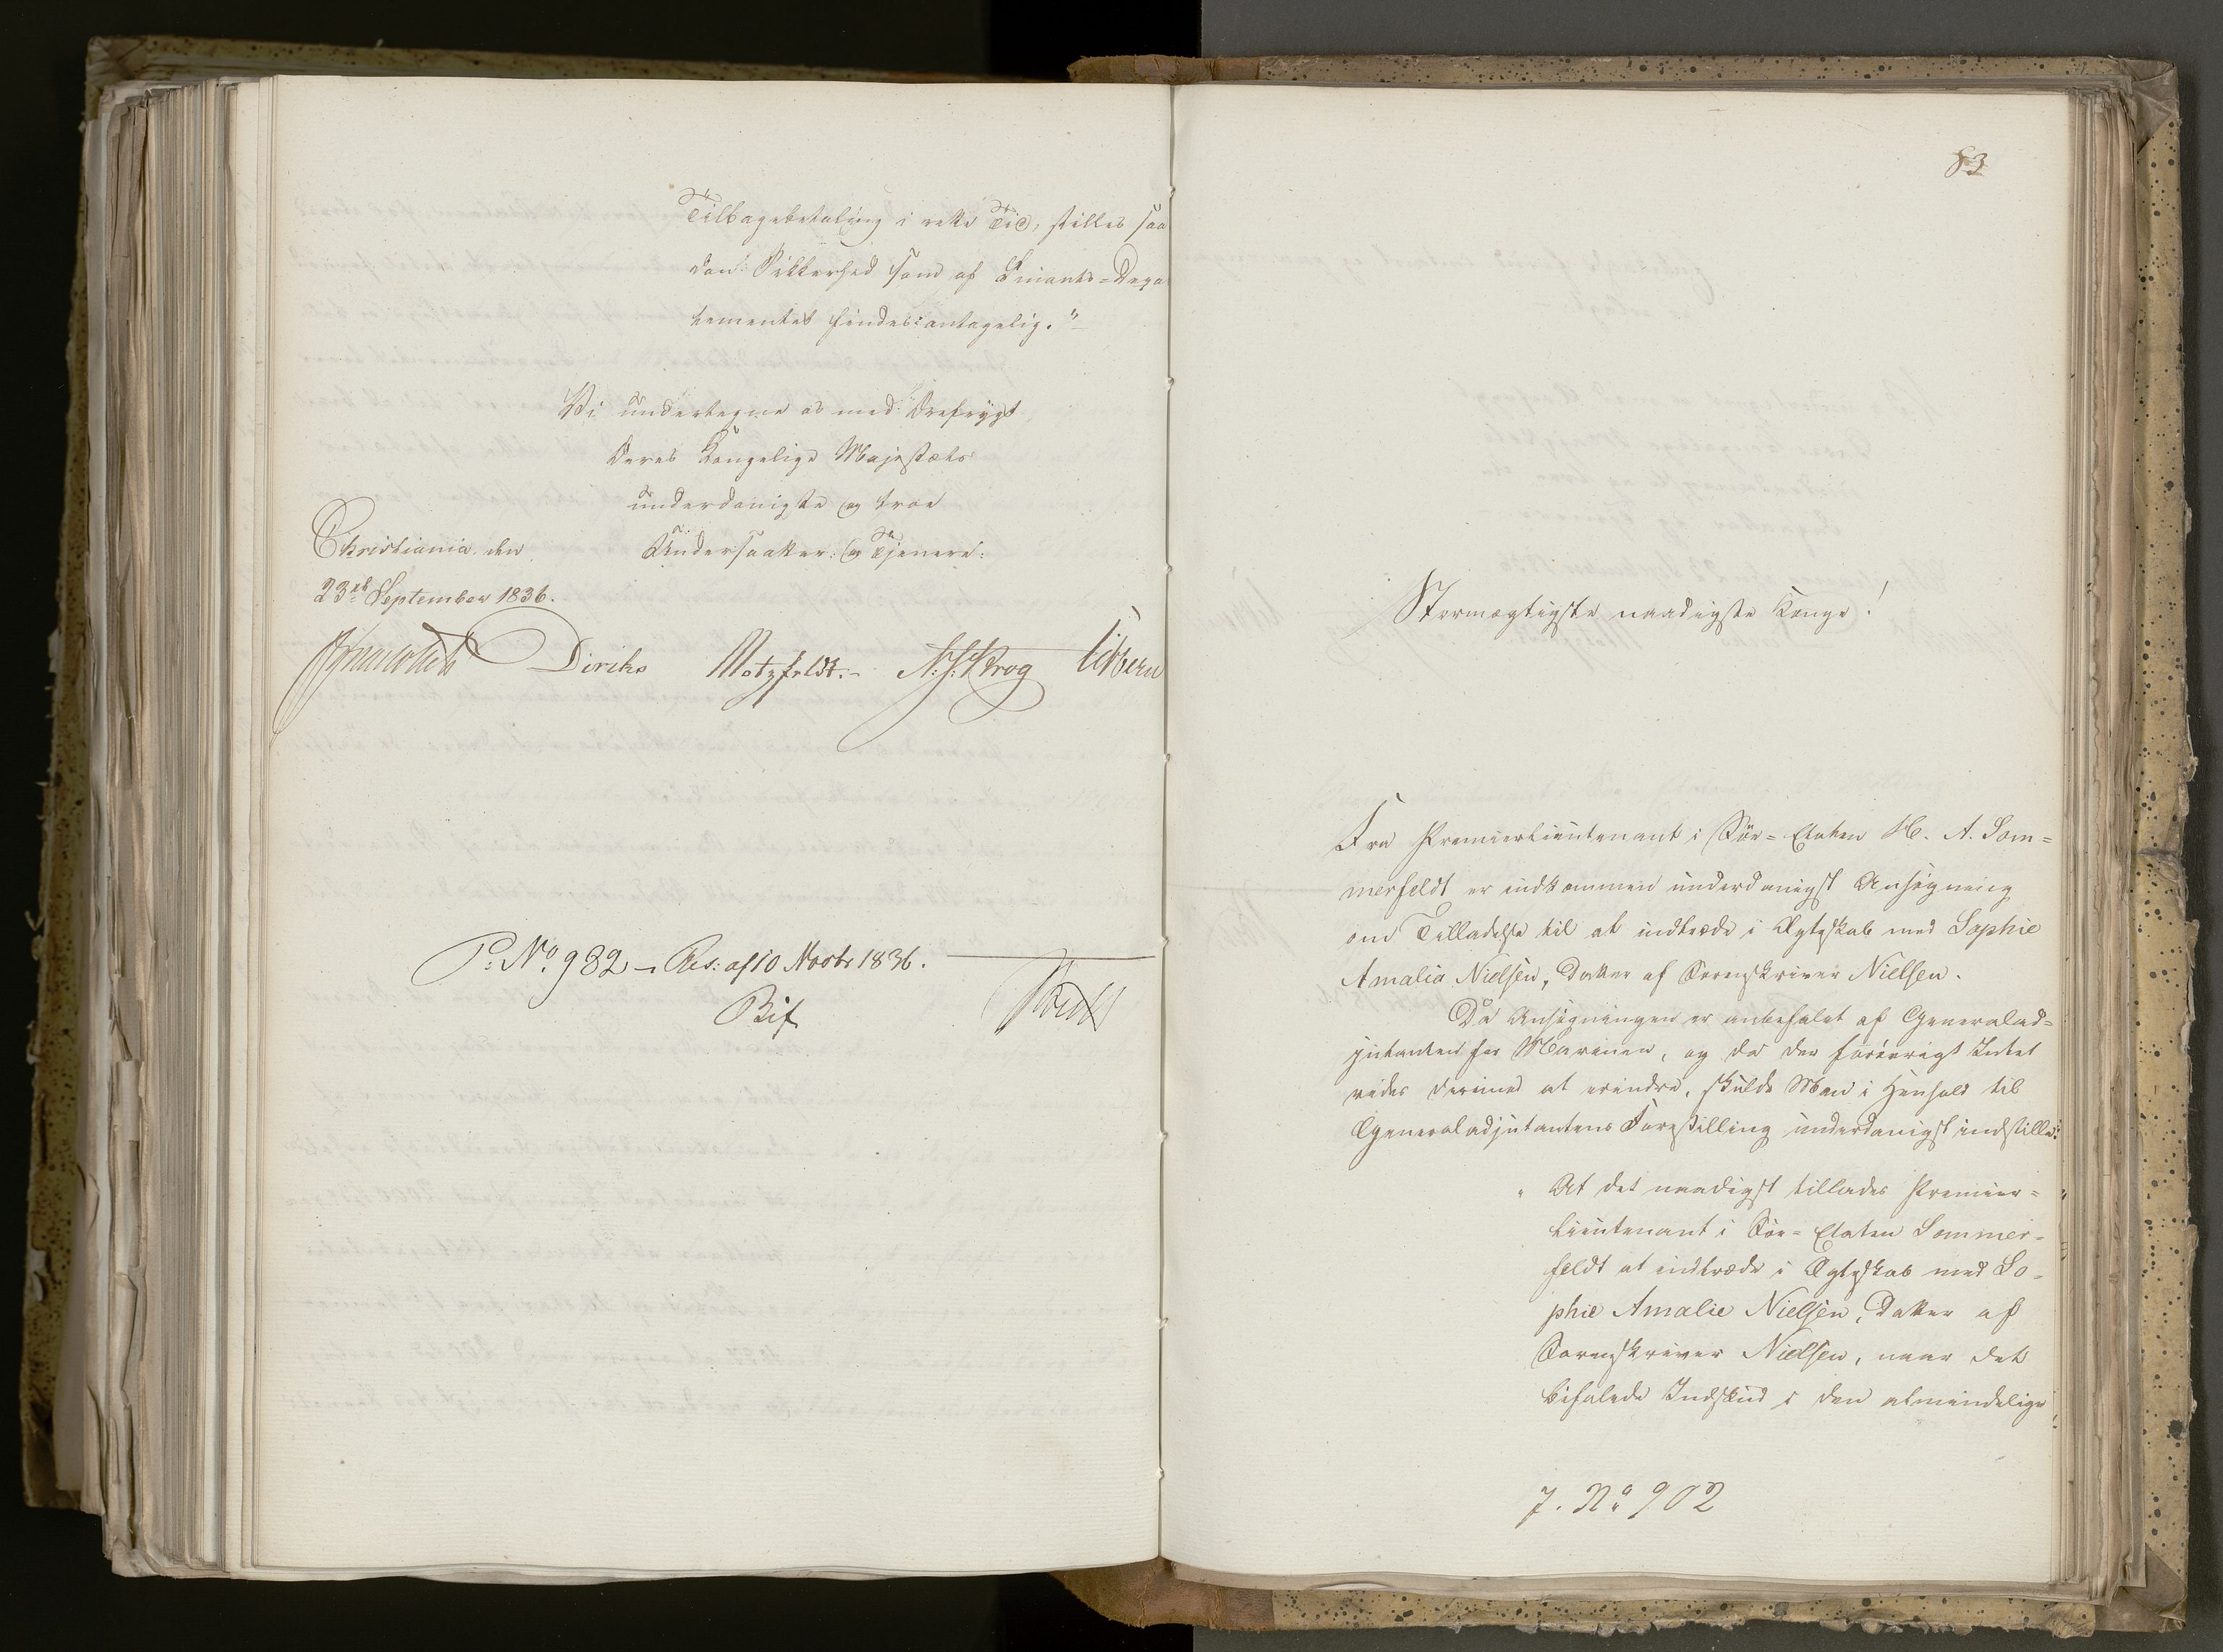 Tilbagebetaling i rette Tid, stilles saa
dan Sikkerhed som af Finants-Depa
tementet findes antagelig."
Vi undertegne os med Ærefrygt
Deres Kongelige Majestæts
underdanigste og troe
Christiania den
Undersaatter og Tjenere:
23de September 1836.
Diriks Motzfeldt. N. J. Krog
P: No. 982 Res: af 10 Novbr 1836.
Bif
83
Stormægtigste naadigste Konge!
Fra Premierlieutenant i Søe-Etaten H. A. Som=
merfeldt er indkommen underdanigst Ansøgning
om Tilladelse til at indtræde i Ægteskab med Sophie
Amalia Nielsen, Datter af Sorenskriver Nielsen.
Da Ansøgningen er anbefalet af Generalad=
jutanten for Marinen, og da der forøvrigt Intet
vides derimod at erindre, skulde Man i Henhold til
Generaladjutantens Forestilling underdanigst indstille:
"At det naadigst tillades Premier=
lieutenant i Søe-Etaten Sommer=
feldt at indtræde i Ægteskab med So=
phie Amalie Nielsen, Datter af
Sorenskriver Nielsen, naar det
befalede Indskud i den almindelige
7. No 902